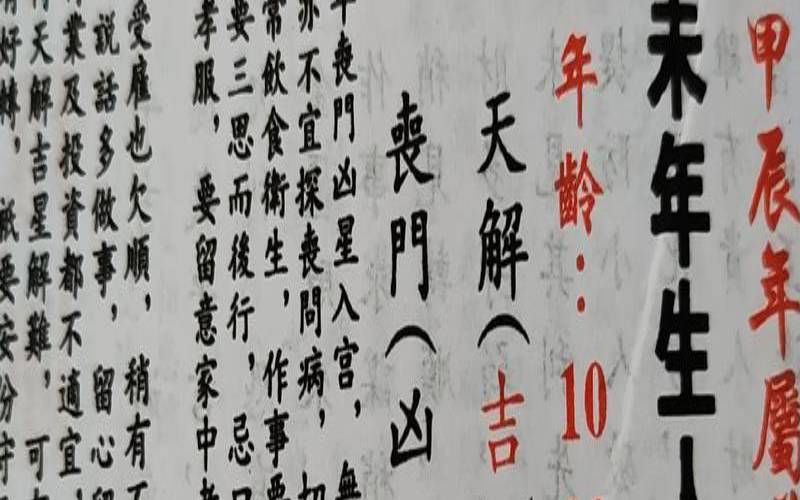 甲辰年屬
未年生人
年齡：10
天解（吉
喪門（凶
年喪門凶星入宮，無
亦不宜探喪問病，切
常飲食衛生，作事要
要三思而後行，忌口
孝服，要留意家中老
受雇也欠順，稍有不
說話多做事，留心留
業及投資都不適宜，
天解吉星解難，可
好轉，祇要安份守